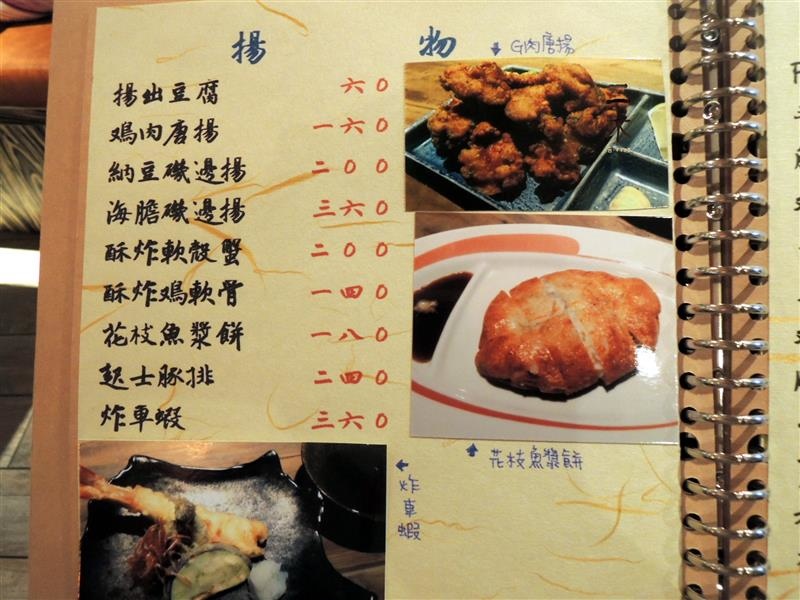 揚物
G肉唐揚
揚出豆腐 六0
鷄肉唐揚 一六0
納豆磯邊揚 二00
海膽磯邊揚 三六0
酥炸軟殼蟹 二00
酥炸鷄軟骨 一四0
花枝魚漿餅 一八0
起士豚排 二四0
炸車蝦 三六0
花枝魚漿餅
炸車蝦